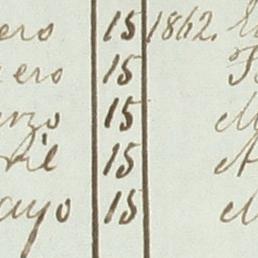 ero 15 1862.
ero 15
rzo 15
il 15
ayo 15